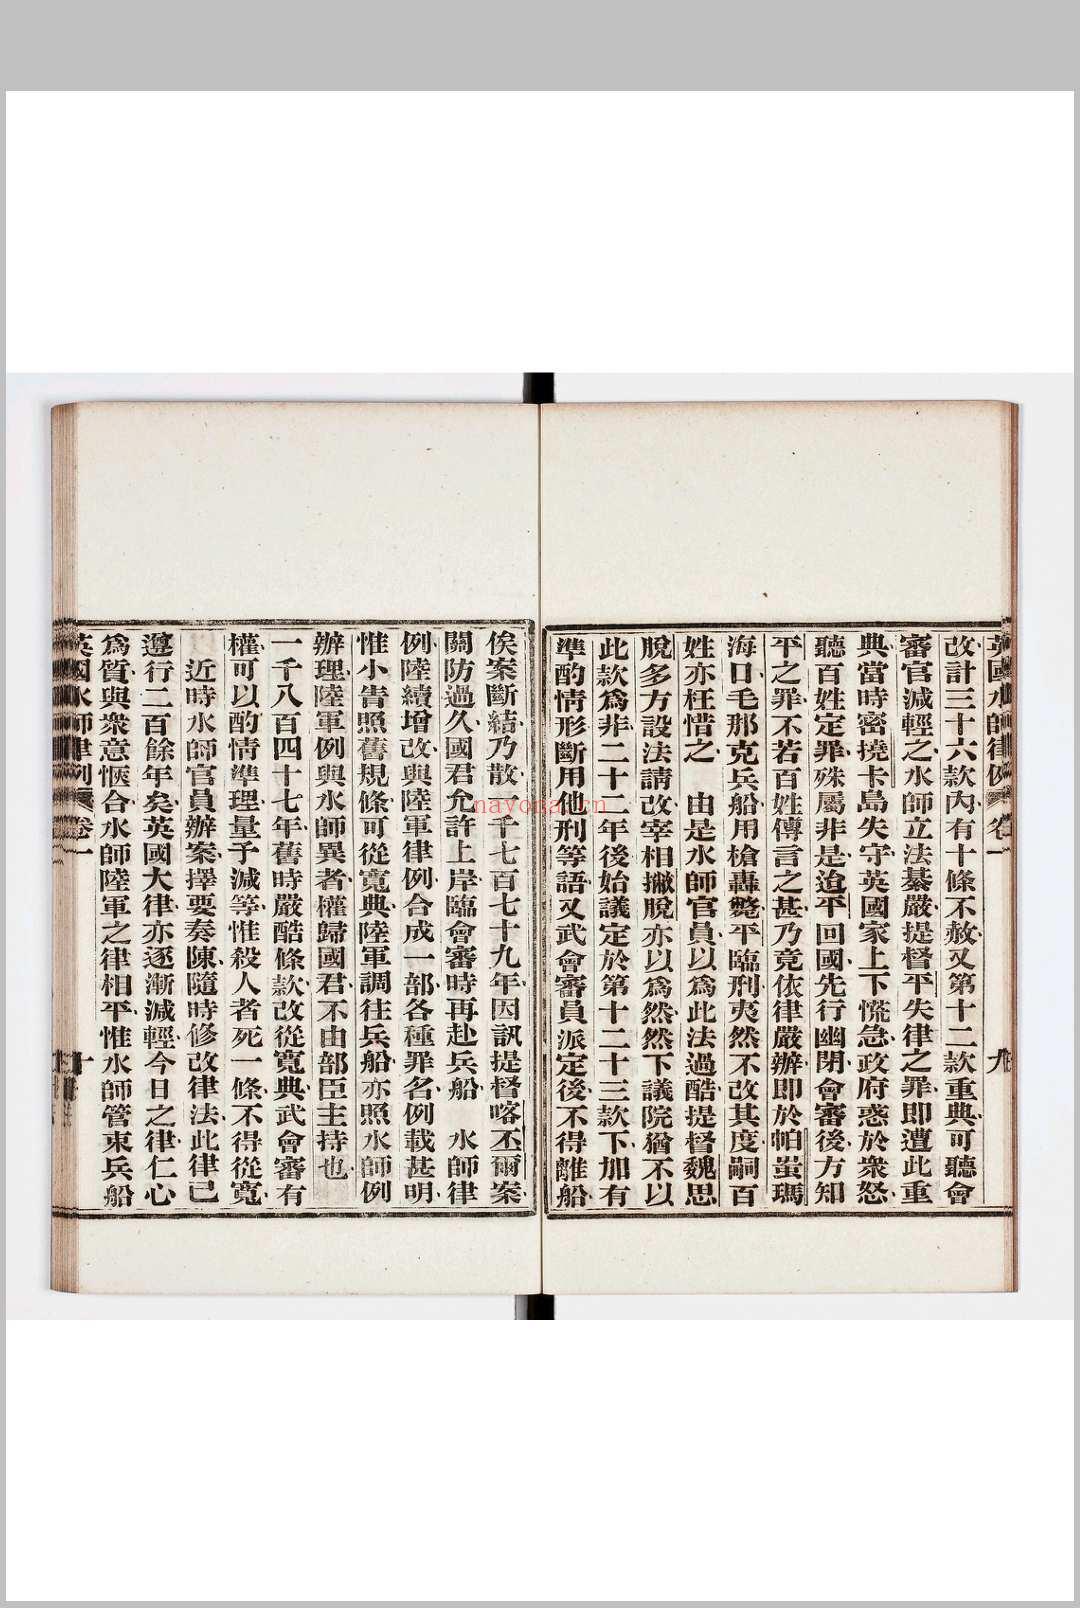 英國水師律例 卷一 九
改計三十六款內有十條不赦又第十二款重典可聽會
審官減輕之水師立法綦嚴提督平失律之罪卽遭此重
典當時密撓卡島失守英國家上下慌急政府惑於衆怒
聽百姓定罪殊屬非是迨平回國先行幽閉會審後方知
平之罪不若百姓傳言之甚乃竟依律嚴辦卽於帕蚩瑪
海口毛那克兵船用槍轟斃平臨刑夷然不改其度嗣百
姓亦枉惜之 由是水師官員以爲此法過酷提督魏思
脫多方設法請改宰相撇脫亦以爲然然下議院猶不以
此款爲非二十二年後始議定於第十二十三款下加有
準酌情形斷用他刑等語又武會審員派定後不得離船
俟案斷結乃散一千七百七十九年因訊提督喀丕爾案
關防過久國君允許上岸臨會審時再赴兵船 水師律
例陸續增改與陸軍律例合成一部各種罪名例載甚明
惟小眚照舊規條可從寬典陸軍調往兵船亦照水師例
辦理陸軍例與水師異者權歸國君不由部臣主持也
一千八百四十七年舊時嚴酷條款改從寬典武會審有
權可以酌情準理量予減等惟殺人者死一條不得從寬
近時水師官員辦案擇要奏陳隨時修改律法此律已
遵行二百餘年矣英國大律亦逐漸減輕今日之律仁心
爲質與衆意愜合水師陸軍之律相平惟水師管束兵船
英國水師律例 卷一 十
navona.cn